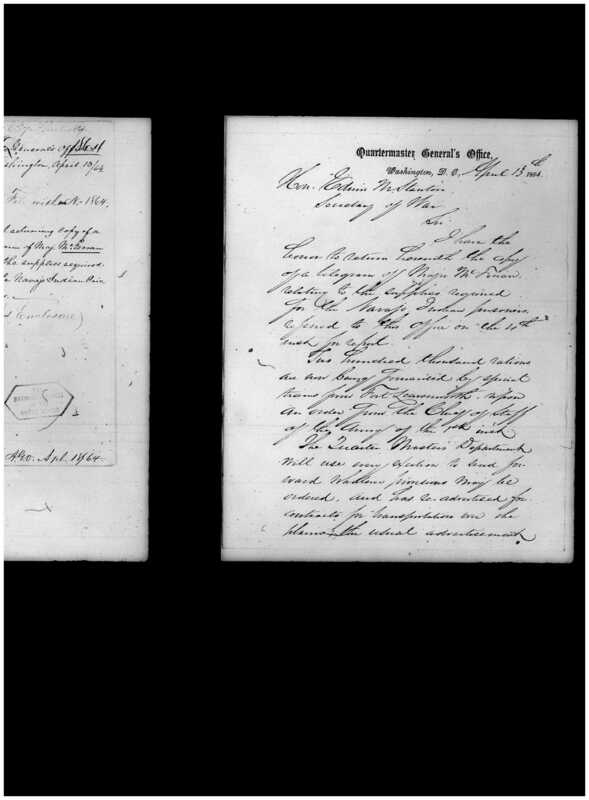 General's Office
Washington, April 13/64
1864.
returning copy of a
of Maj. McFerran
the supplies required
Navajo Indian
Enclosure)
AGO. Apl. 18/64
Quartermaster General's Office,
Washington, D. C. April 13th 1864.
Hon. Edwin M. Stanton
Secretary of War
Sir:
I have the
honor to return herewith the copy
of a telegram of Major McFerran
relating to the supplies required
for the Navajo Indian prisoners
referred to this Office on the
inst. for report.
Two hundred thousand rations
are now being forwarded by special
trains from Fort Leavenworth, upon
an order from the Chief of Staff
of the Army of the inst.
The Quarter Masters Department
will use every exertion to send for-
ward whatever provisions may be
ordered, and has re-advertised for
contracts for transportation over the
plains, the usual advertisement